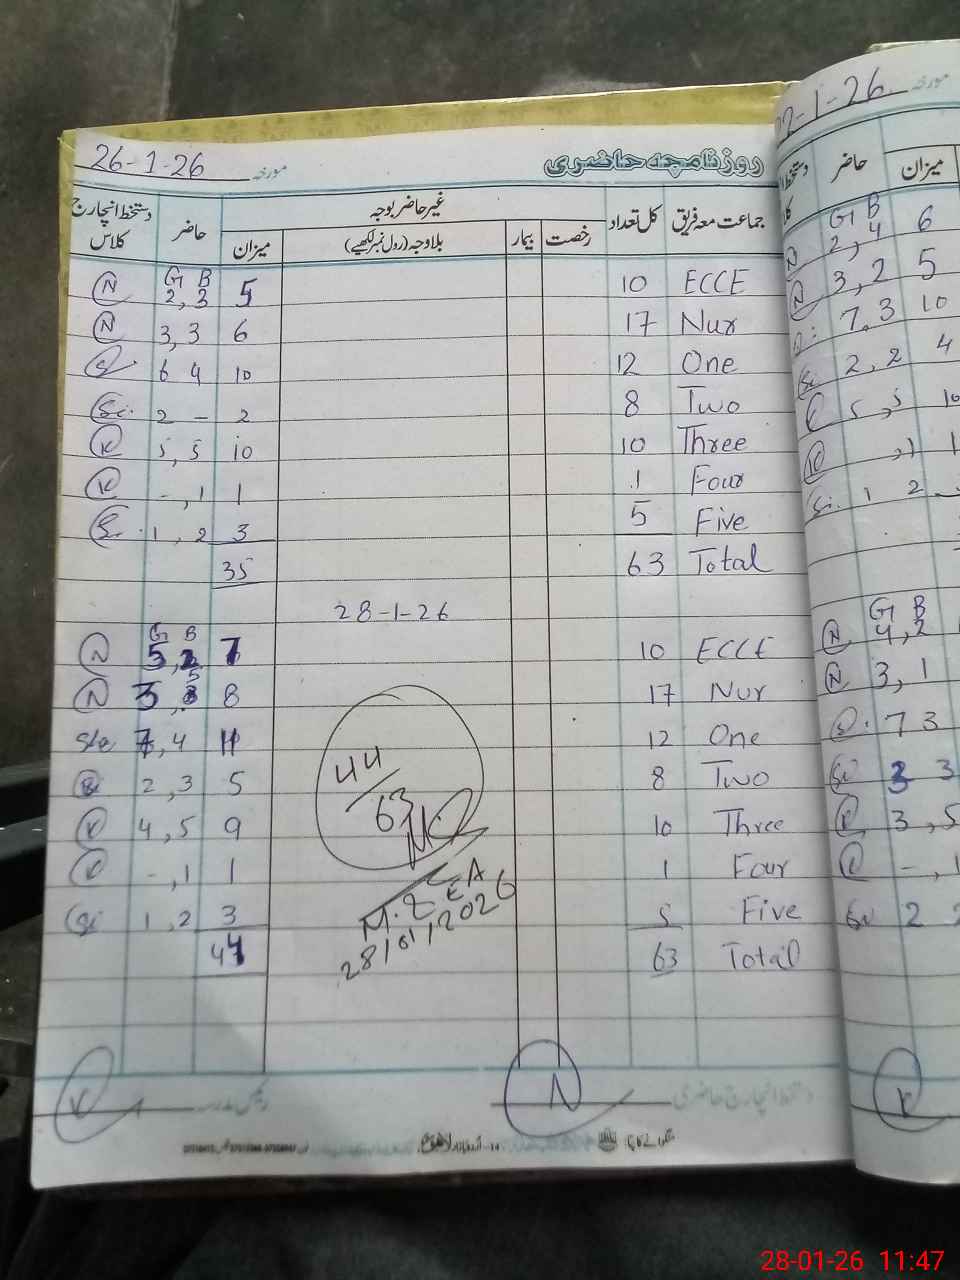 روزنامچہ حاضری مورخہ 26-1-26
جماعت معہ فریق کل تعداد غیر حاضر بوجہ حاضر دستخط انچارج کلاس
رخصت بیمار بلاوجہ (رول نمبر لکھیے) میزان
G B
ECCE 10 5 2, 3 N
Nur 17 6 3, 3 N
One 12 10 6 4
Two 8 2 2 - Si.
Three 10 10 5, 5 K
Four 1 1 -, 1 K
Five 5 3 1, 2
Total 63 35
28-1-26
G B
ECCE 10 7 5, 2 N
Nur 17 8 3, 5 N
One 12 11 7, 4
Two 8 5 2, 3
Three 10 9 4, 5 K
Four 1 1 -, 1 K
Five 5 3 1, 2 Si
Total 63 44
44
63
M.Z EA
28/01/2026
دستخط انچارج حاضری N رئیس مدرسہ K
مورخہ -1-26
میزان حاضر
G B
6 2, 4 N
5 3, 2 N
10 7, 3
4 2, 2 Si
10 5, 5 K
1 , 1 K
1 2 Si.
G B
4, 2 N
3, 1 N
7 3
3 3 Si
3, 5 K
-, 1 K
2 2 Si
K
28-01-26 11:47